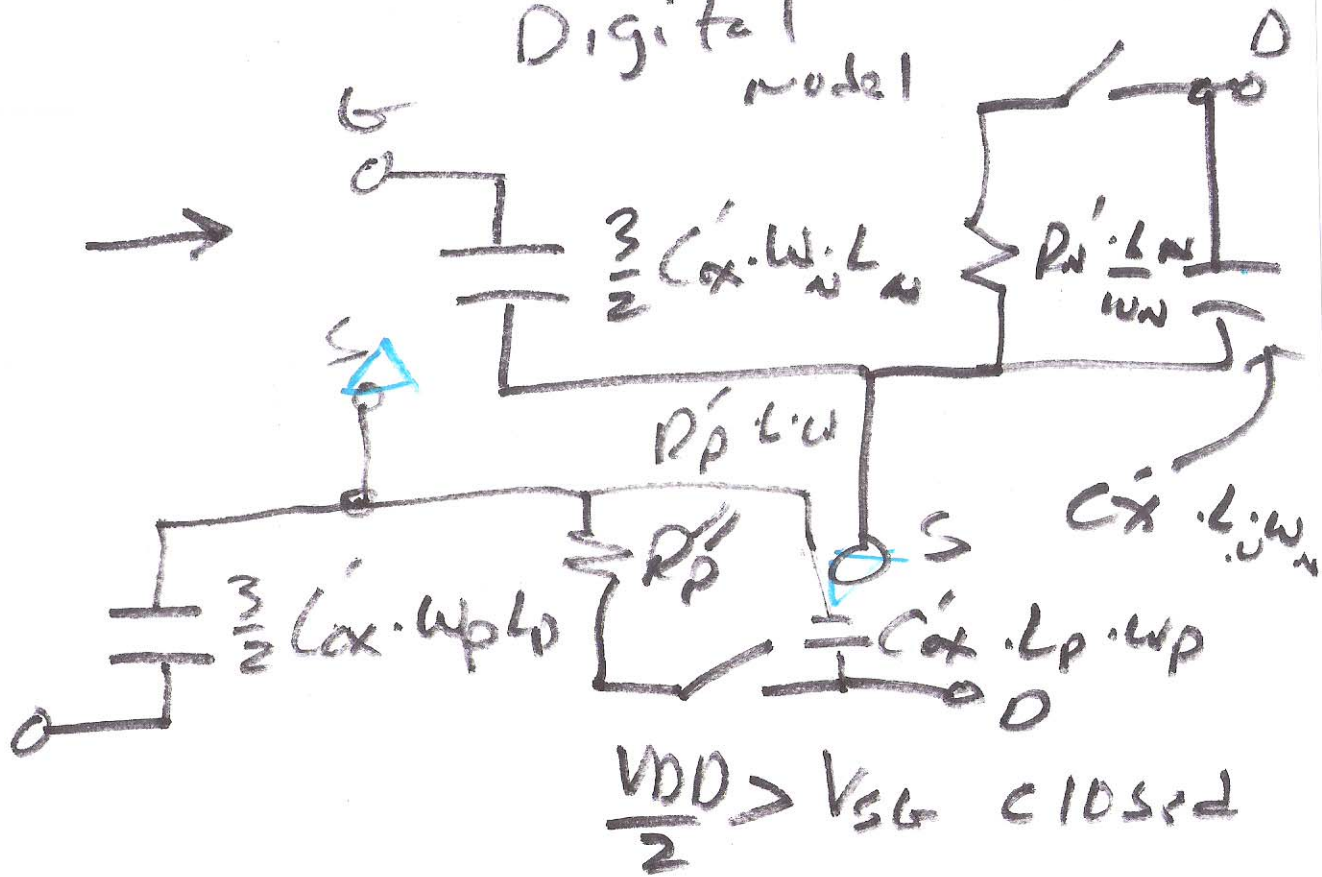 Digital
model
G
D
3/2 C'ox·WN·LN
RN'·LN/WN
S
Rp'·L·W
Rp''
S
C'ox·L·WN
3/2 C'ox·WpLp
C'ox·Lp·Wp
D
VDD/2 > VSG closed